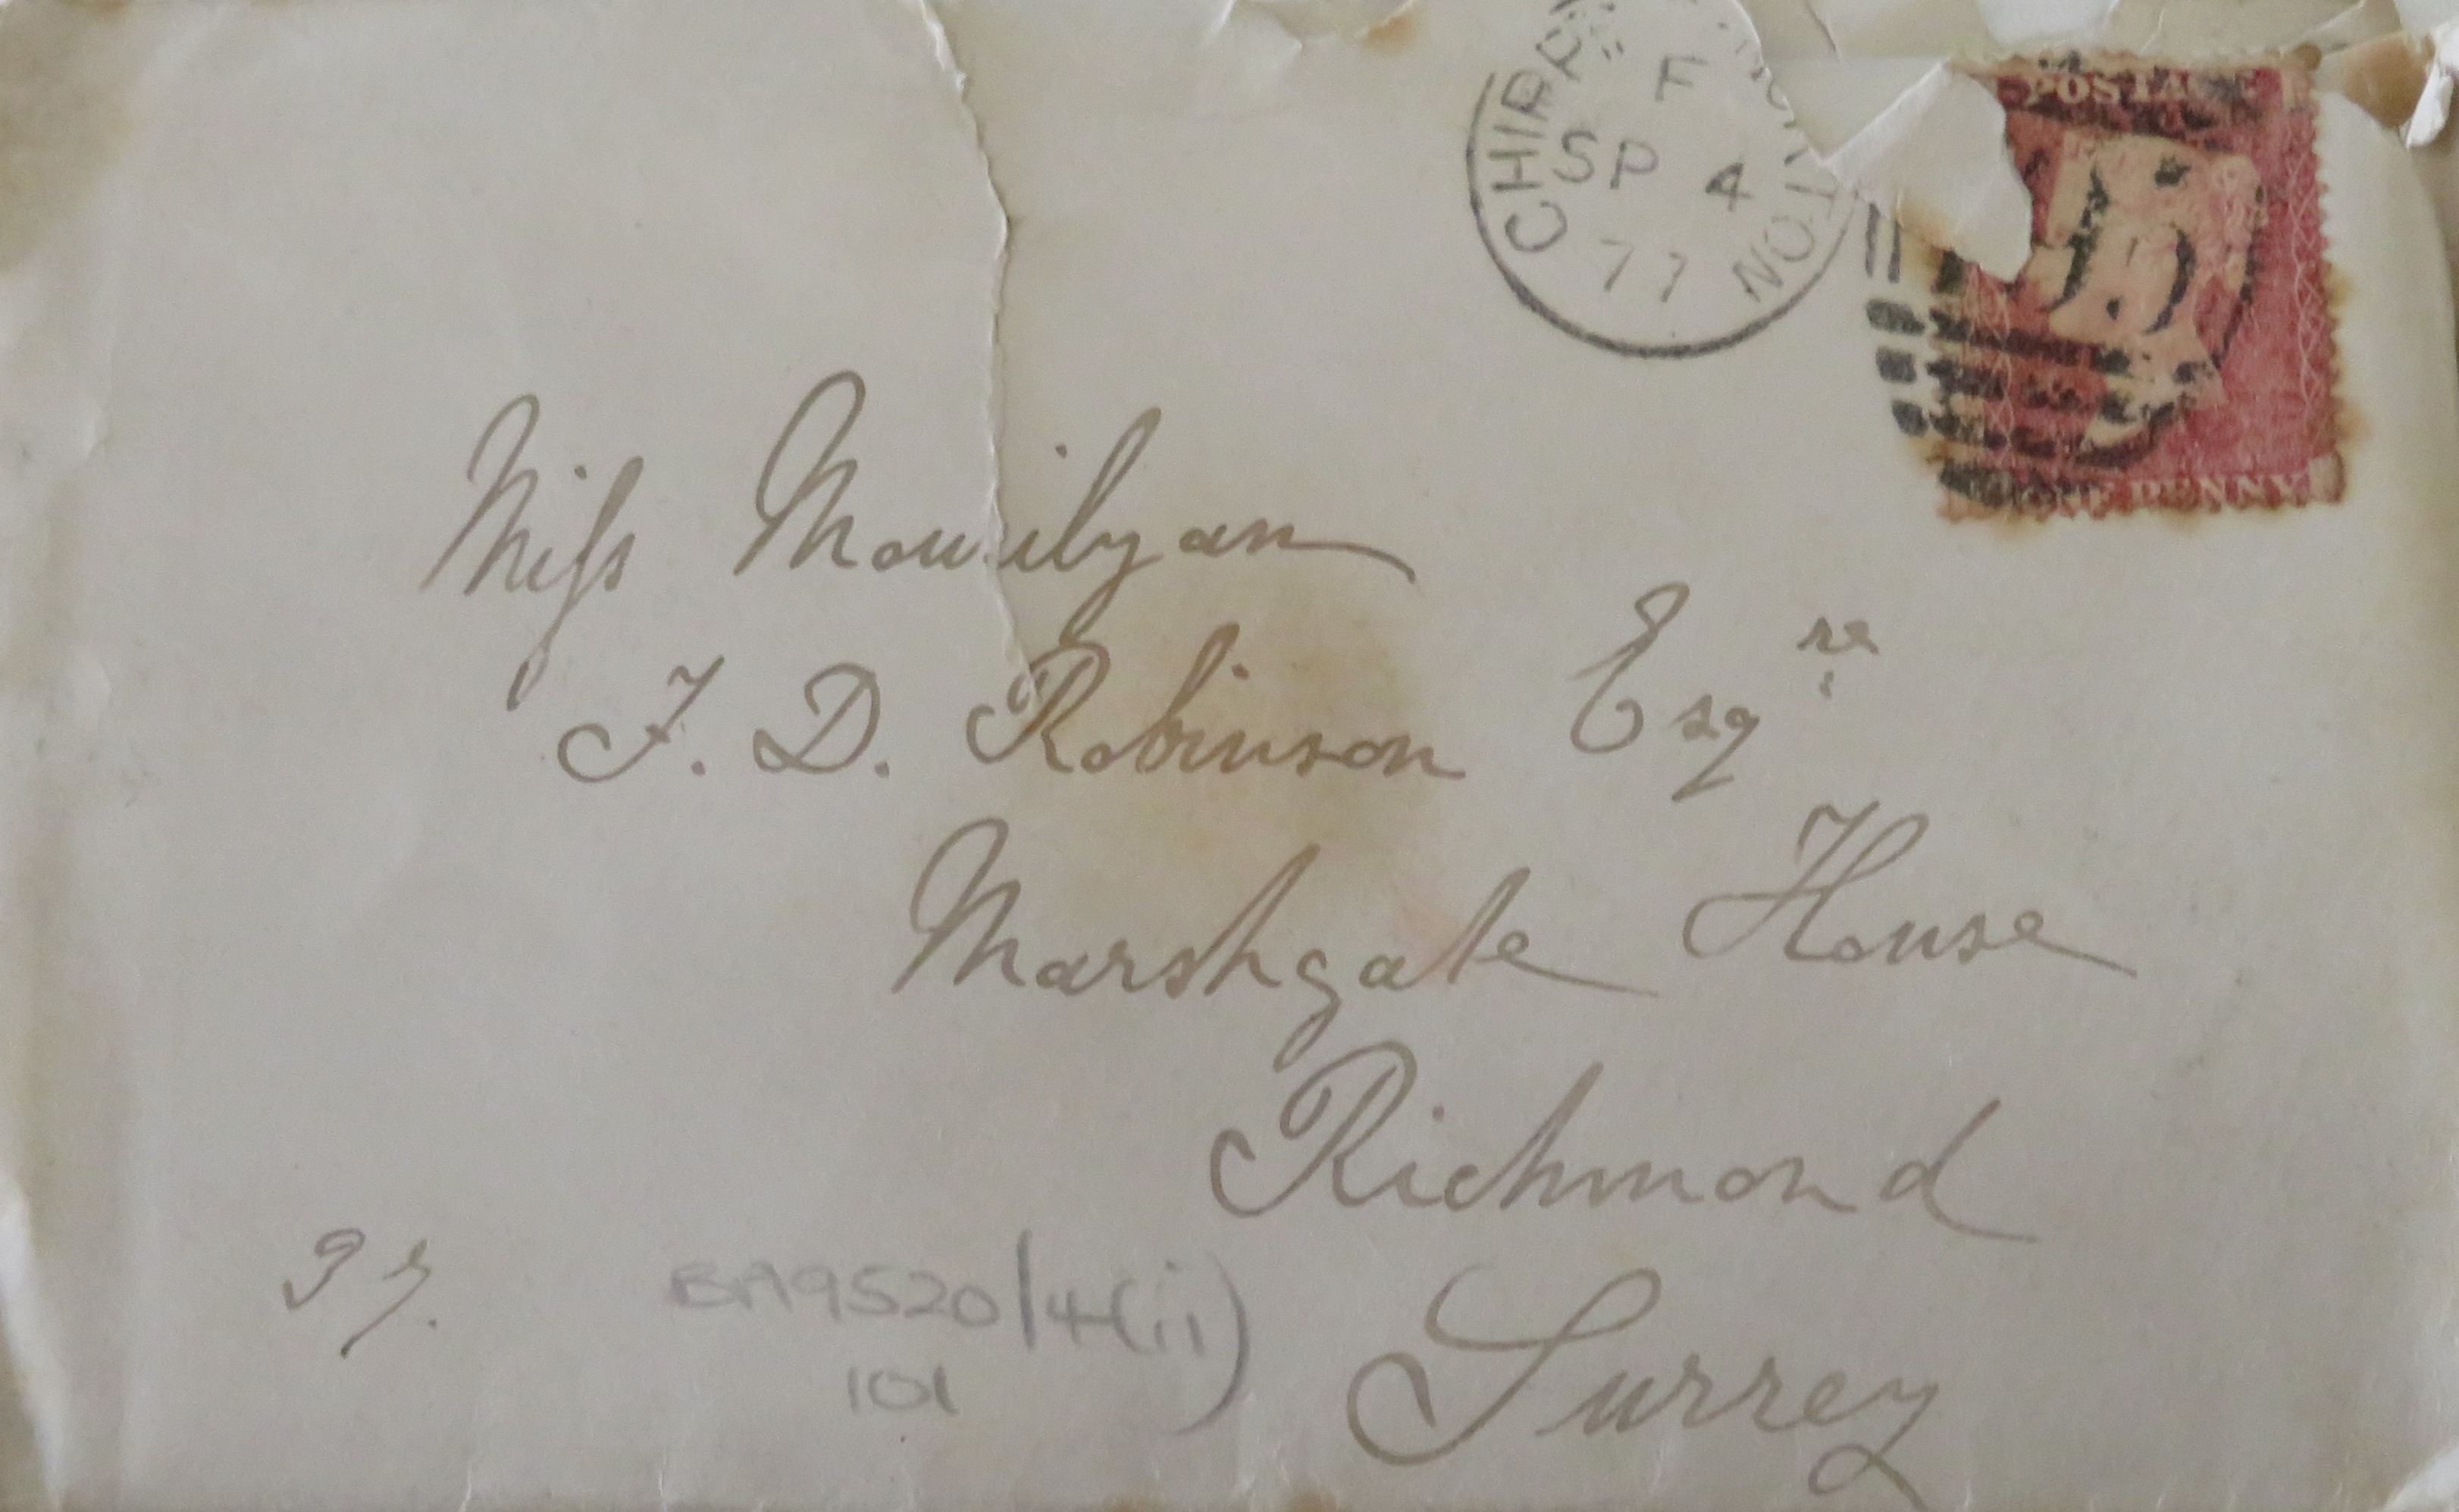 CHIPP NORTON
F
SP 4
77
POSTAGE
ONE PENNY
Miss Mowilyan
F. D. Robinson Esqre
Marshgate House
Richmond
Surrey
BA9520/4(ii)
101